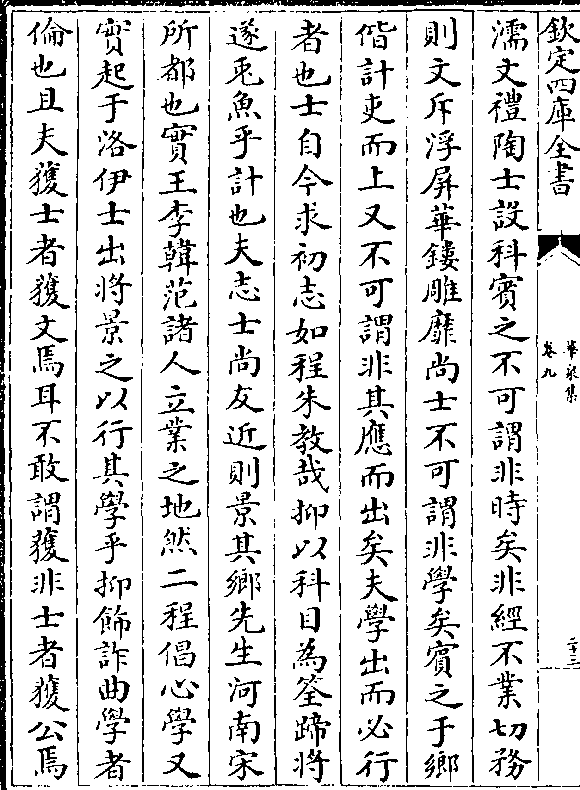 欽定四庫全書
華泉集
卷九
二十三
濡文禮陶士設科賓之不可謂非時矣非經不業切務
則文斥浮屏華鏤雕靡尚士不可謂非學矣賓之于鄉
偕計吏而上又不可謂非其應而出矣夫學出而必行
者也士自今求初志如程朱教哉抑以科目為筌蹄將
遂兎魚乎計也夫志士尚友近則景其鄉先生河南宋
所都也實王李韓范諸人立業之地然二程倡心學又
實起于洛伊士出將景之以行其學乎抑飾詐曲學者
倫也且夫獲士者獲文焉耳不敢謂獲非士者獲公焉